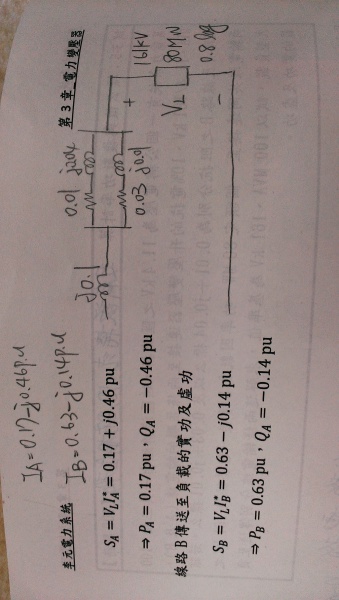 李元電力系統
第 3 章_電力變壓器
I_A=0.17-j0.46p.u
I_B=0.63-j0.14p.u
j0.1
0.01 j0.04
0.03 j0.01
161kV
80MW
0.8 lag
+ V_L −
S_A = V_L I_A^* = 0.17 + j0.46 pu
⇒ P_A = 0.17 pu，Q_A = −0.46 pu
線路 B 傳送至負載的實功及虛功
S_B = V_L I_B^* = 0.63 − j0.14 pu
⇒ P_B = 0.63 pu，Q_A = −0.14 pu